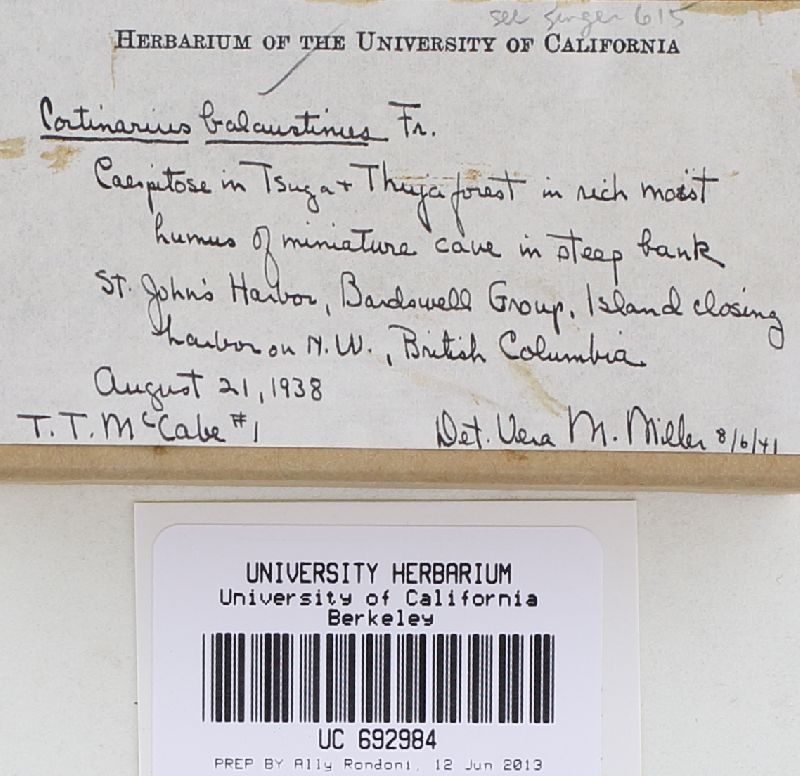 see Singer 615
HERBARIUM OF THE UNIVERSITY OF CALIFORNIA
Cortinarius balaustinus Fr.
Caespitose in Tsuga + Thuja forest in rich moist
humus of miniature cave in steep bank
St. John's Harbor, Bardswell Group, Island closing
harbor on N.W., British Columbia
August 21, 1938
T. T. McCabe #1
Det. Vera M. Miller 8/6/41
UNIVERSITY HERBARIUM
University of California
Berkeley
UC 692984
PREP BY Ally Rondoni, 12 Jun 2013